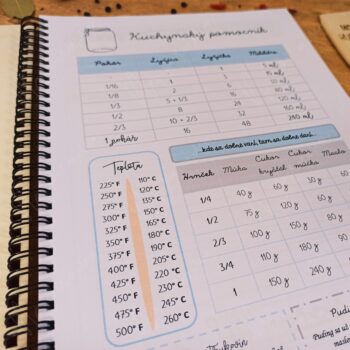 Kuchynský pomocník
Pohár Lyžica Lyžička Mililitre
1/16 1 5 ml
1/8 1 3 15 ml
1/3 5 + 1/3 16 80 ml
8 24
2/3 10 + 2/3 32 160 ml
1 pohár 16 48 240 ml
...kde sa dobre varí, tam sa dobre darí...
Teplota
225° F 110° C
250° F 120° C
275° F 135° C
300° F 150° C
325° F 165° C
350° F 180° C
375° F 190° C
400° F 205° C
425° F 220 °C
450° F 230 °C
475° F 245° C
500° F 260° C
Hrnček Múka Cukor kryštál Cukor múčka Maslo
1/4 40 g 30 g
1/2 75 g 120 g 60 g
2/3 100 g 150 g 80 g
3/4 110 g 180 g 90 g
1 150 g 240 g
Pudi
Puding sa už